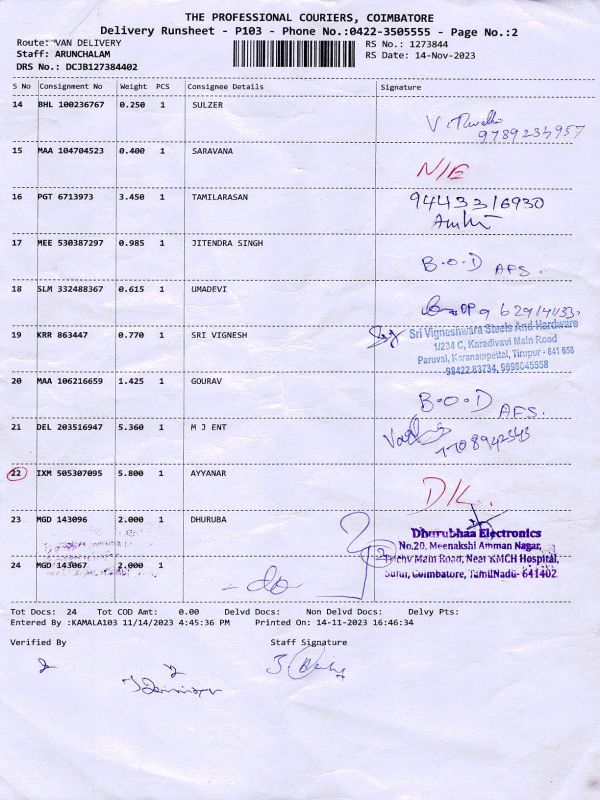 THE PROFESSIONAL COURIERS, COIMBATORE
Delivery Runsheet - P103 - Phone No.:0422-3505555 - Page No.:2
Route: VAN DELIVERY RS No.: 1273844
Staff: ARUNCHALAM RS Date: 14-Nov-2023
DRS No.: DCJB127384402
S No Consignment No Weight PCS Consignee Details Signature
14 BHL 100236767 0.250 1 SULZER
9789234957
15 MAA 104704523 0.400 1 SARAVANA N/E
16 PGT 6713973 3.450 1 TAMILARASAN 9443316930
17 MEE 530387297 0.985 1 JITENDRA SINGH B.O.D AFS.
18 SLM 332488367 0.615 1 UMADEVI
19 KRR 863447 0.770 1 SRI VIGNESH Sri Vigneshwara Steels And Hardware
1/234 C, Karadivavi Main Road
Paruvai, Karanampettai, Tirupur - 641 658
98422 83734, 9698045558
20 MAA 106216659 1.425 1 GOURAV B.O.D AFS.
21 DEL 203516947 5.360 1 M J ENT
7708942343
22 IXM 505307095 5.800 1 AYYANAR D/L.
23 MGD 143096 2.000 1 DHURUBA Dhurubhaa Electronics
No.20, Meenakshi Amman Nagar,
Trichy Main Road, Near KMCH Hospital,
24 MGD 143067 2.000 1 Sulur, Coimbatore, TamilNadu- 641402.
- do
Tot Docs: 24 Tot COD Amt: 0.00 Delvd Docs: Non Delvd Docs: Delvy Pts:
Entered By :KAMALA103 11/14/2023 4:45:36 PM Printed On: 14-11-2023 16:46:34
Verified By Staff Signature